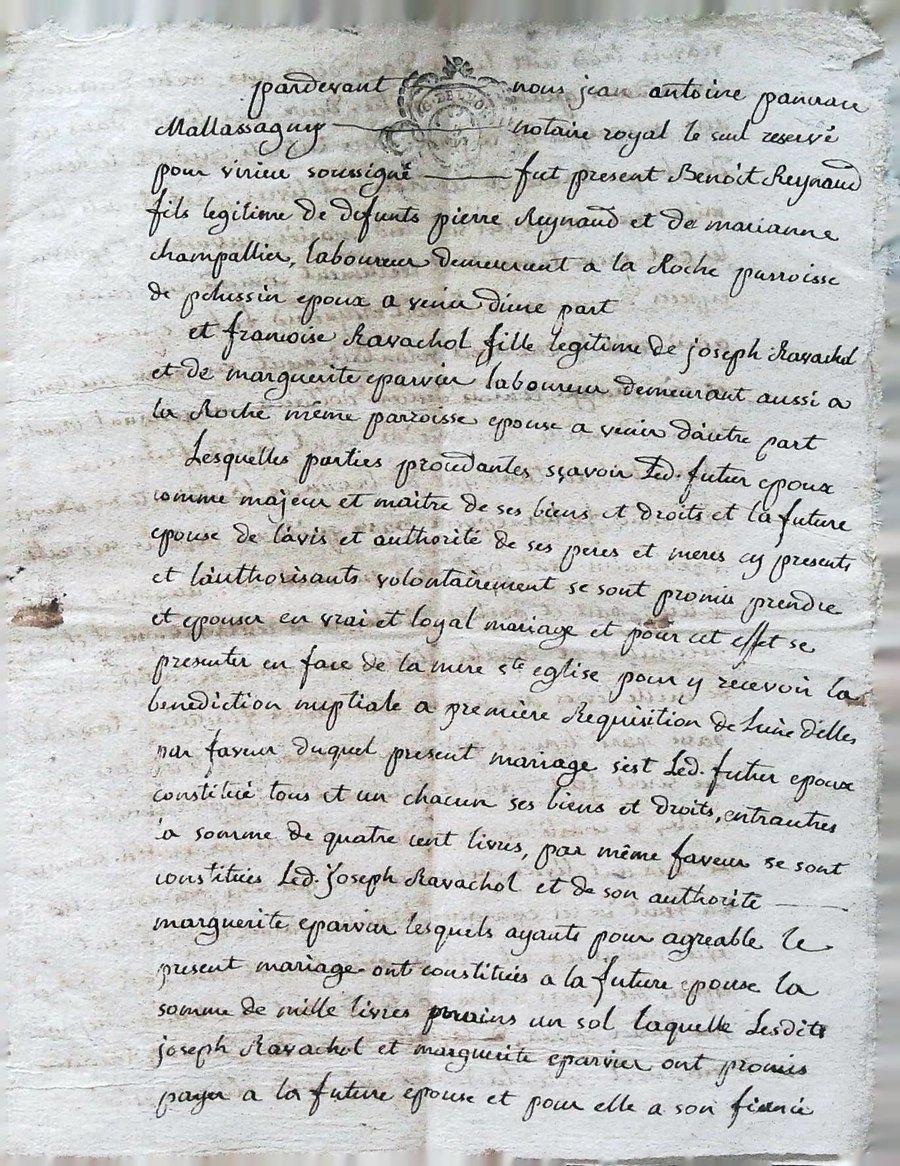 pardevant nous jean antoine
Mallassagny notaire royal le seul reservé
pour virieu soussigné fut present Benoit Reynaud
fils legitime de defunts pierre Reynaud et de marianne
champallier, laboureur demeurant a la Roche parroisse
de pelussin epoux a venir d'une part
et francoise Ravachol fille legitime de joseph Ravachol
et de marguerite eparvier laboureur demeurant aussi a
la Roche même parroisse epouse a venir d'autre part
Lesquelles parties procedantes sçavoir Led. futur epoux
comme majeur et maitre de ses biens et droits et la future
epouse de l'avis et authorité de ses peres et meres cy presents
et l'authorisants volontairement se sont promis prendre
et epouser en vrai et loyal mariage et pour cet effet se
presenter en face de la mere ste eglise pour y recevoir la
benediction nuptiale a première Requisition de L'une d'elles
par faveur duquel present mariage s'est Led. futur epoux
constitué tous et un chacun ses biens et droits, entrautres
la somme de quatre cent livres, par même faveur se sont
constitués Led. joseph Ravachol et de son authorite
marguerite eparvier lesquels ayants pour agreable le
present mariage ont constitués a la future epouse la
somme de mille livres moins un sol laquelle Lesdits
joseph Ravachol et marguerite eparvier ont promis
payer a la future epouse et pour elle a son fiancé